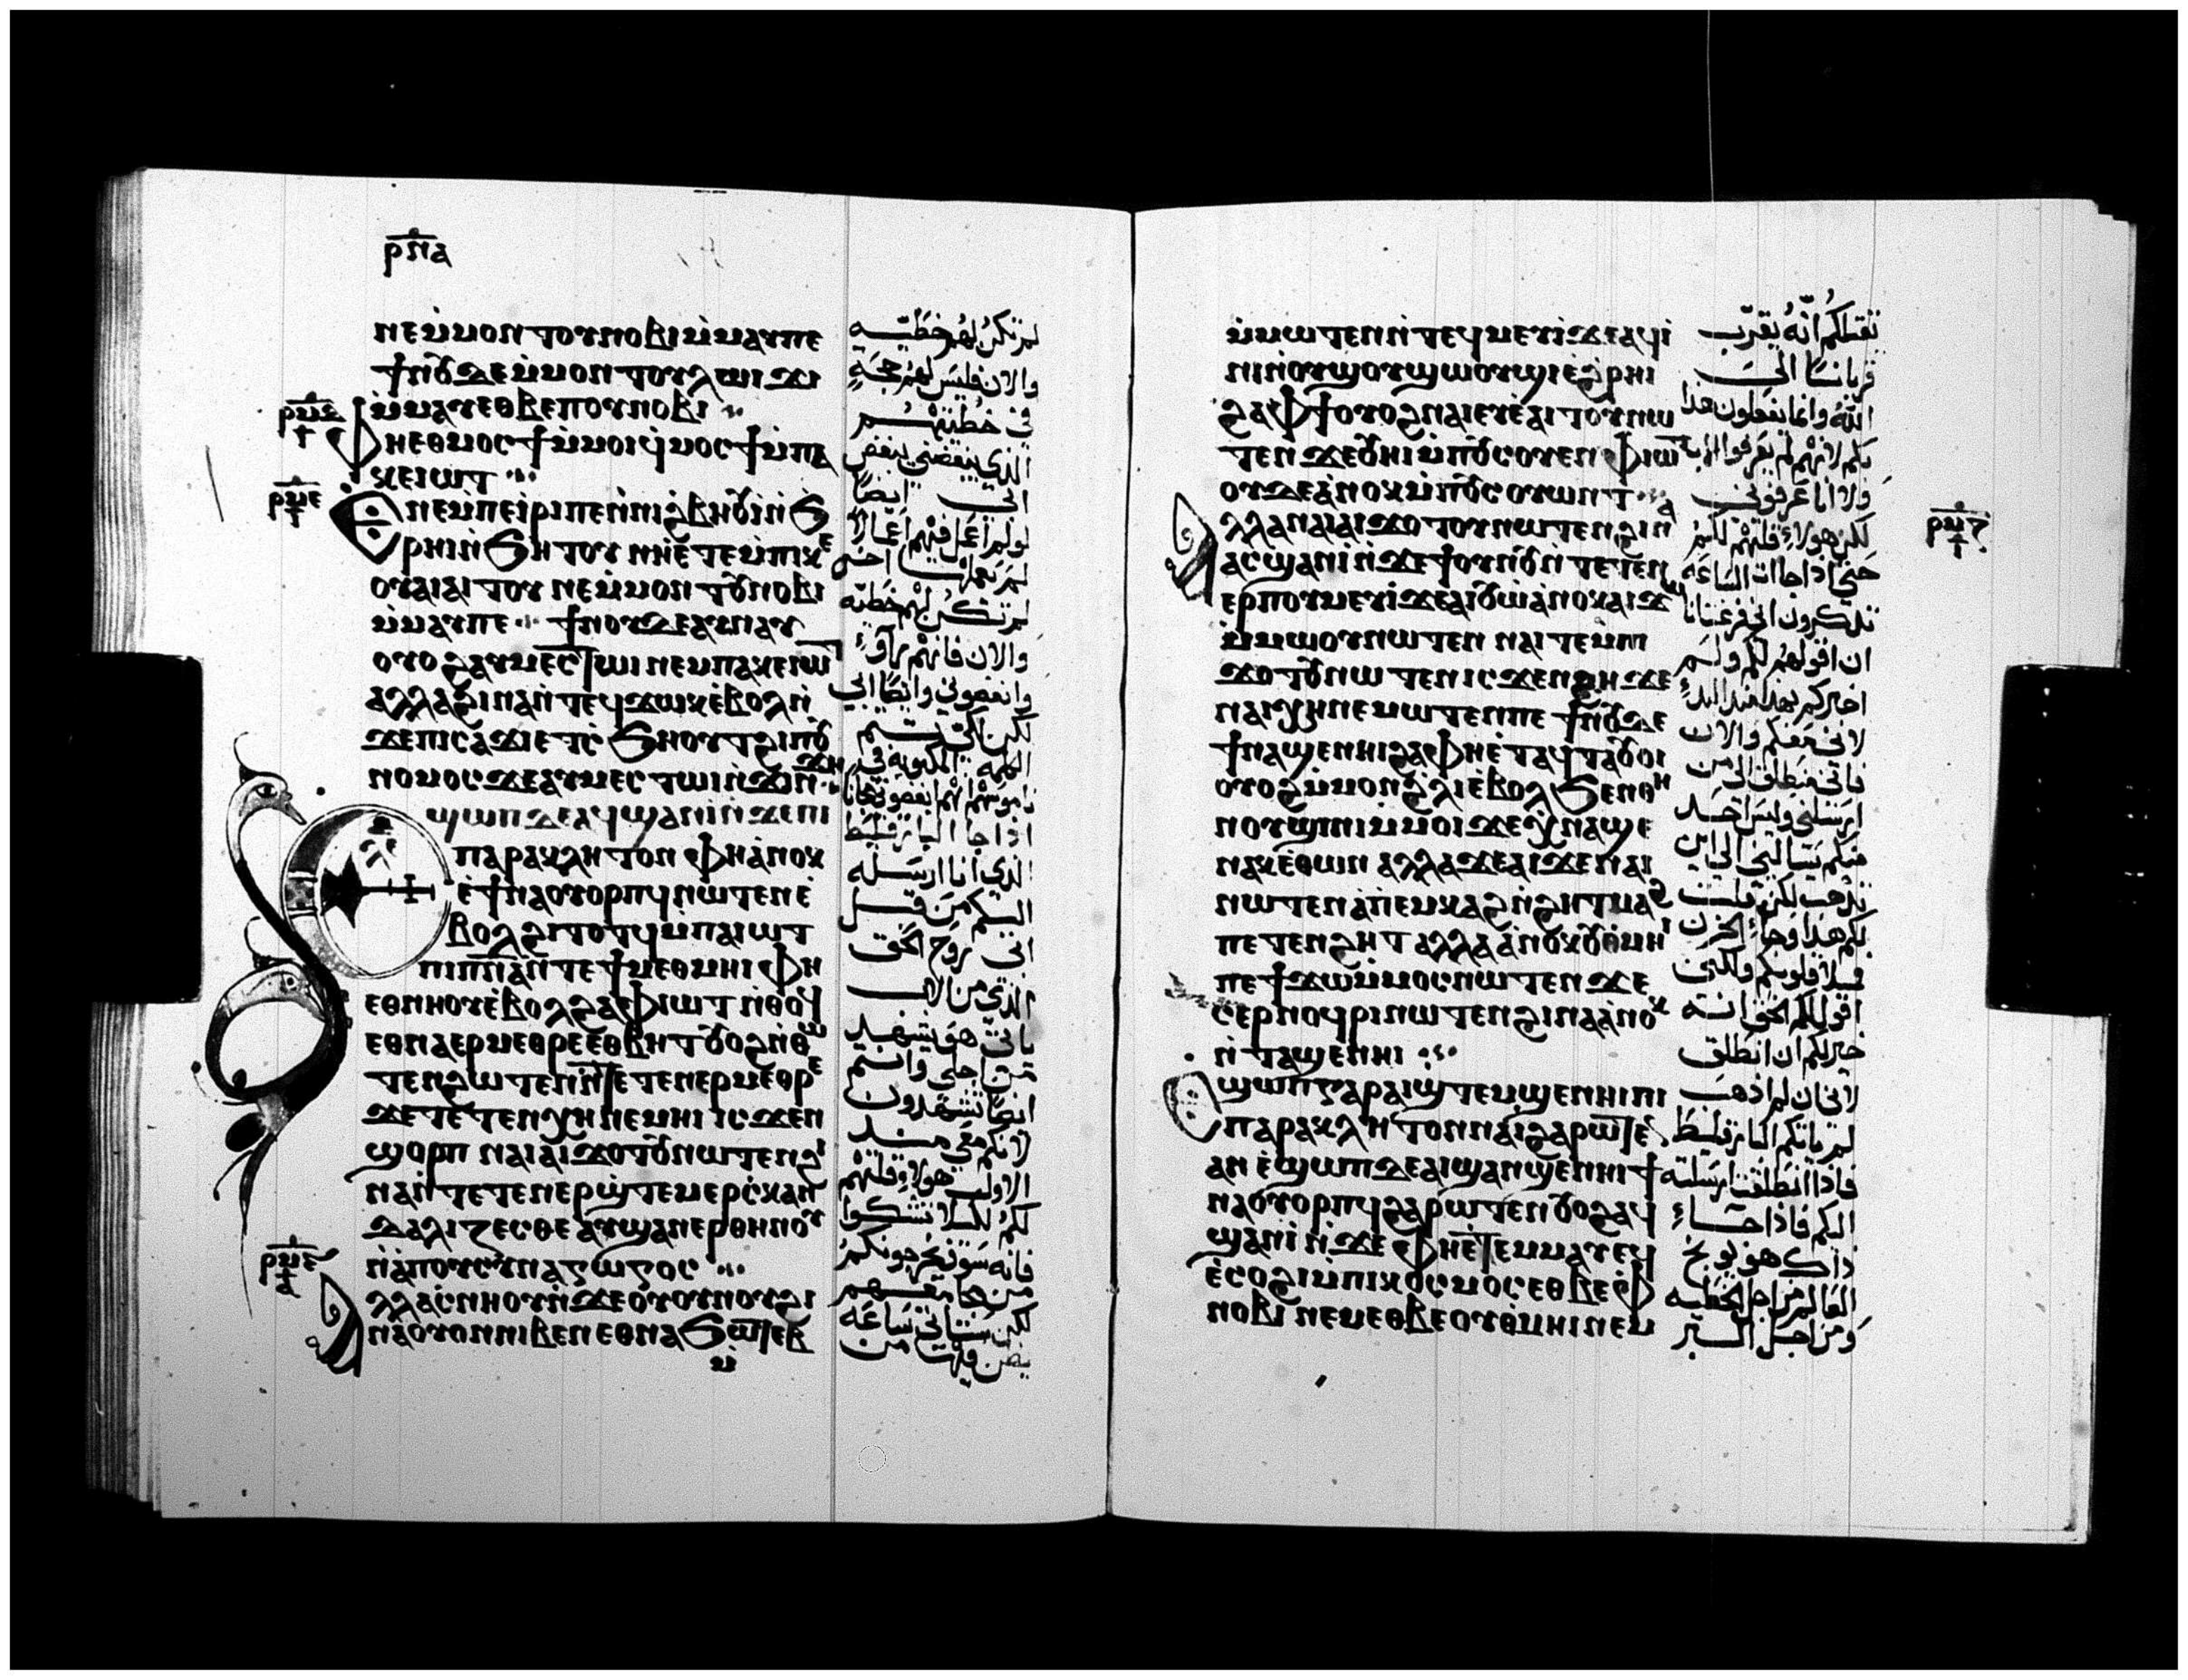 ⲣⲛⲁ
ⲛⲉⲙ̀ⲙⲟⲛ ⲧⲟⲩⲛⲟⲃⲓ ⲙ̀ⲙⲁⲩⲡⲉ
ϯⲛⲟⲩ ⲇⲉ ⲙ̀ⲙⲟⲛ ⲧⲟⲩⲗⲱⲓϫⲓ
ⲙ̀ⲙⲁⲩ ⲉⲑⲃⲉ ⲡⲟⲩⲛⲟⲃⲓ
ⲫⲏⲉⲑⲙⲟⲥϯ ⲙ̀ⲙⲟⲓ ϥⲙⲟⲥϯ ⲙ̀ⲡⲁ
ⲕⲉⲓⲱⲧ
ⲉⲛⲉⲙ̀ⲡⲉⲓ̀ⲣⲓ ⲡⲉ ⲛ̀ⲛⲓϩⲃⲏⲟⲩⲓ̀ ⲛ̀ϧ
ⲣⲏⲓ ⲛ̀ϧⲏⲧⲟⲩ ⲛⲏⲉ̀ⲧⲉⲙ̀ⲡⲓⲕⲉ
ⲟⲩⲁⲓ ⲁⲓⲧⲟⲩ ⲛⲉⲙ̀ⲙⲟⲛ ⲧⲟⲩⲛⲟⲃⲓ
ⲙ̀ⲙⲁⲩⲡⲉ ϯⲛⲟⲩ ⲇⲉ ⲁⲩⲛⲁⲩ
ⲟⲩⲟϩ ⲁⲩⲙⲉⲥⲧⲱⲓ ⲛⲉⲙ ⲡⲁⲕⲉⲓⲱⲧ
ⲁⲗⲗⲁ ϩⲓⲛⲁ ⲛ̀ⲧⲉϥϫⲱⲕ ⲉ̀ⲃⲟⲗ ⲛ̀
ϫⲉ ⲡⲓⲥⲁϫⲓ ⲉⲧⲥ̀ϧⲏⲟⲩⲧ ϩⲓ ⲡⲟⲩ
ⲛⲟⲙⲟⲥ ϫⲉ ⲁⲩⲙⲉⲥⲧⲱⲓ ⲛ̀ϫⲓⲛϫⲏ
ⲉϣⲱⲡ ⲇⲉ ⲁϥϣⲁⲛⲓ̀ ⲛ̀ϫⲉ ⲡⲓ
ⲡⲁⲣⲁⲕⲗⲏⲧⲟⲛ ⲫⲏ ⲁ̀ⲛⲟⲕ
ⲉ̀ϯⲛⲁⲟⲩⲟⲣⲡϥ ⲛⲱⲧⲉⲛ ⲉ̀
ⲃⲟⲗ ϩⲓⲧⲟⲧϥ ⲙ̀ⲡⲁⲓⲱⲧ
ⲡⲓⲡⲛⲁ ⲛ̀ⲧⲉ ϯⲙⲉⲑⲙⲏⲓ ⲫⲏ
ⲉⲑⲛⲏⲟⲩ ⲉ̀ⲃⲟⲗ ϩⲁ ⲫⲓⲱⲧ ⲛ̀ⲑⲟϥ
ⲉⲑⲛⲁⲉⲣⲙⲉⲑⲣⲉ ⲉⲑⲃⲏⲧ ⲟⲩⲟϩ ⲛ̀ⲑⲱ
ⲧⲉⲛ ϩⲱⲧⲉⲛ ⲛ̀ⲧⲉⲧⲉⲛⲉⲣⲙⲉⲑⲣⲉ
ϫⲉ ⲧⲉⲧⲉⲛⲭⲏ ⲛⲉⲙⲏⲓ ⲓⲥϫⲉⲛ
ϣⲟⲣⲡ ⲛⲁⲓ ⲁⲓϫⲟⲧⲟⲩ ⲛⲱⲧⲉⲛ ϩⲓ
ⲛⲁ ⲛ̀ⲧⲉⲧⲉⲛⲉⲣϣ̀ⲧⲉⲙⲉⲣⲥ̀ⲕⲁⲛ
ⲇⲁⲗⲓⲍⲉⲥⲑⲉ ⲁⲩϣⲁⲛⲉⲣⲑⲏⲛⲟⲩ
ⲛ̀ⲁ̀ⲡⲟⲥⲩⲛⲁⲅⲱⲅⲟⲥ
ⲁⲗⲗⲁ ⲥ̀ⲛⲏⲟⲩ ⲛ̀ϫⲉ ⲟⲩⲟⲩⲛⲟⲩ ϩⲓ
ⲛⲁ ⲟⲩⲟⲛ ⲛⲓⲃⲉⲛ ⲉⲑⲛⲁϧⲱⲧⲉⲃ
ⲙ̀
لم تكن لهم خطية
والان فليس لهم حجة
في خطيتهم
الذي يبغضني يبغض
ابي ايضا
لو لم اعمل فيهم اعمالا
لم يعملها اخر
لم تكن لهم خطيه
والان فانهم راوا
وابغضوني وايضا ابي
لكن لكي تتم
الكلمة المكتوبه في
ناموسهم انهم ابغضوني مجانا
اذا جا البارقليط
الذي انا ارسله
اليكم من قبل
ابي روح الحق
الذي من الاب
ياتي هو يشهد
من اجلي وانتم
ايضا تشهدون
لانكم معي منذ
الاول هولاء قلتهم
لكم لكيلا تشكوا
فانه سوف يخرجونكم
من مجامعهم
لكن ستاتي ساعة
يظن فيها من
ⲙ̀ⲙⲱⲧⲉⲛ ⲛ̀ⲧⲉϥⲙⲉⲩⲓ̀ ϫⲉ ⲁϥⲓ̀
ⲛⲓ ⲛ̀ⲟⲩϣⲟⲩϣⲱⲟⲩϣⲓ ⲉ̀ϩⲣⲏⲓ
ϩⲁ ⲫϯ ⲟⲩⲟϩ ⲛⲁⲓ ⲉⲩⲉ̀ⲁⲓⲧⲟⲩ ⲛⲱ
ⲧⲉⲛ ϫⲉ ⲟⲩⲏⲓ ⲙ̀ⲡⲟⲩⲥⲟⲩⲉⲛ ⲫⲓⲱⲧ
ⲟⲩⲇⲉ ⲁ̀ⲛⲟⲕ ⲙ̀ⲡⲟⲩⲥⲟⲩⲱⲛⲧ
ⲁⲗⲗⲁ ⲛⲁⲓ ⲁⲓϫⲟⲧⲟⲩ ⲛⲱⲧⲉⲛ ϩⲓⲛⲁ
ⲁⲥϣⲁⲛⲓ̀ ⲛ̀ϫⲉ ϯⲟⲩⲛⲟⲩ ⲛ̀ⲧⲉⲧⲉⲛ
ⲉⲣⲡⲟⲩⲙⲉⲩⲓ̀ ϫⲉ ⲁⲓⲟⲩⲱ ⲁ̀ⲛⲟⲕ ⲁⲓϫⲱ
ⲙ̀ⲙⲱⲟⲩ ⲛⲱⲧⲉⲛ ⲛⲁⲓ ⲧⲉⲙⲡⲓ
ϫⲟⲧⲟⲩ ⲛⲱⲧⲉⲛ ⲓⲥϫⲉⲛ ϩⲏ ϫⲉ
ⲛⲁⲓⲭⲏ ⲛⲉⲙⲱⲧⲉⲛⲡⲉ ϯⲛⲟⲩ ⲇⲉ
ϯⲛⲁϣⲉⲛⲏⲓ ϩⲁ ⲫⲏⲉ̀ⲧⲁϥⲧⲁⲟⲩⲟⲓ
ⲟⲩⲟϩ ⲙ̀ⲙⲟⲛ ϩⲗⲓ ⲉ̀ⲃⲟⲗ ϧⲉⲛ ⲑⲏ
ⲛⲟⲩ ϣⲓⲛⲓ ⲙ̀ⲙⲟⲓ ϫⲉ ⲭⲛⲁϣⲉ
ⲛⲁⲕ ⲉ̀ⲑⲱⲛ ⲁⲗⲗⲁ ϫⲉ ⲁⲓϫⲉ ⲛⲁⲓ
ⲛⲱⲧⲉⲛ ⲁ̀ ⲡⲉⲙⲕⲁϩ ⲛ̀ϩⲏⲧ ⲙⲁϩ
ⲡⲉⲧⲉⲛϩⲏⲧ ⲁⲗⲗⲁ ⲁ̀ⲛⲟⲕ ⲟⲩⲙⲏⲓ
ⲡⲉ ϯϫⲱ ⲙ̀ⲙⲟⲥ ⲛⲱⲧⲉⲛ ϫⲉ
ⲥⲉⲣⲛⲟϥⲣⲓ ⲛⲱⲧⲉⲛ ϩⲓⲛⲁ ⲁ̀ⲛⲟⲕ
ⲛ̀ⲧⲁϣⲉⲛⲏⲓ
ⲉϣⲱⲡ ⲅⲁⲣ ⲁⲓϣⲧⲉⲙϣⲉⲛⲏⲓ ⲡⲓ
ⲡⲁⲣⲁⲕⲗⲏⲧⲟⲛ ⲛⲁⲓ̀ ϩⲁⲣⲱⲧⲉⲛ
ⲁⲛ ⲉ̀ϣⲱⲡ ⲇⲉ ⲁⲓϣⲁⲛϣⲉⲛⲏⲓ ϯ
ⲛⲁⲟⲩⲟⲣⲡϥ ϩⲁⲣⲱⲧⲉⲛ ⲟⲩⲟϩ ⲁϥ
ϣⲁⲛⲓ̀ ⲛ̀ϫⲉ ⲫⲏⲉ̀ⲧⲉⲙⲙⲁⲩ ⲉϥ
ⲉ̀ⲥⲟϩⲓ ⲙ̀ⲡⲓⲕⲟⲥⲙⲟⲥ ⲉⲑⲃⲉ ⲫ
ⲛⲟⲃⲓ ⲛⲉⲙ ⲉⲑⲃⲉ ⲟⲩⲙⲉⲑⲙⲏⲓ ⲛⲉⲙ
يقتلكم انه يقرب
قربانا الي
الله وانما يفعلون هذا
بكم لانهم لم يعرفوا الاب
ولا انا عرفوني
لكن هولاء قلتهم لكم
حتي اذا جات الساعة
تذكرون اني فرغت انا
ان اقولهم لكم ولم
اخبركم بهذا منذ البدء
لاني معكم والان
فاني منطلق الي من
ارسلني وليس احد
منكم يسالني الي اين
تذهب لكن قلت
لكم هذا وجاء الحزن
فملا قلوبكم ولكني
اقول لكم الحق انه
خير لكم ان انطلق
لاني ان لم اذهب
لم ياتكم البارقليط
فاذا انطلقت ارسلته
اليكم فاذا جاء
ذاك هو يوبخ
العالم من اجل الخطية
ومن اجل البر